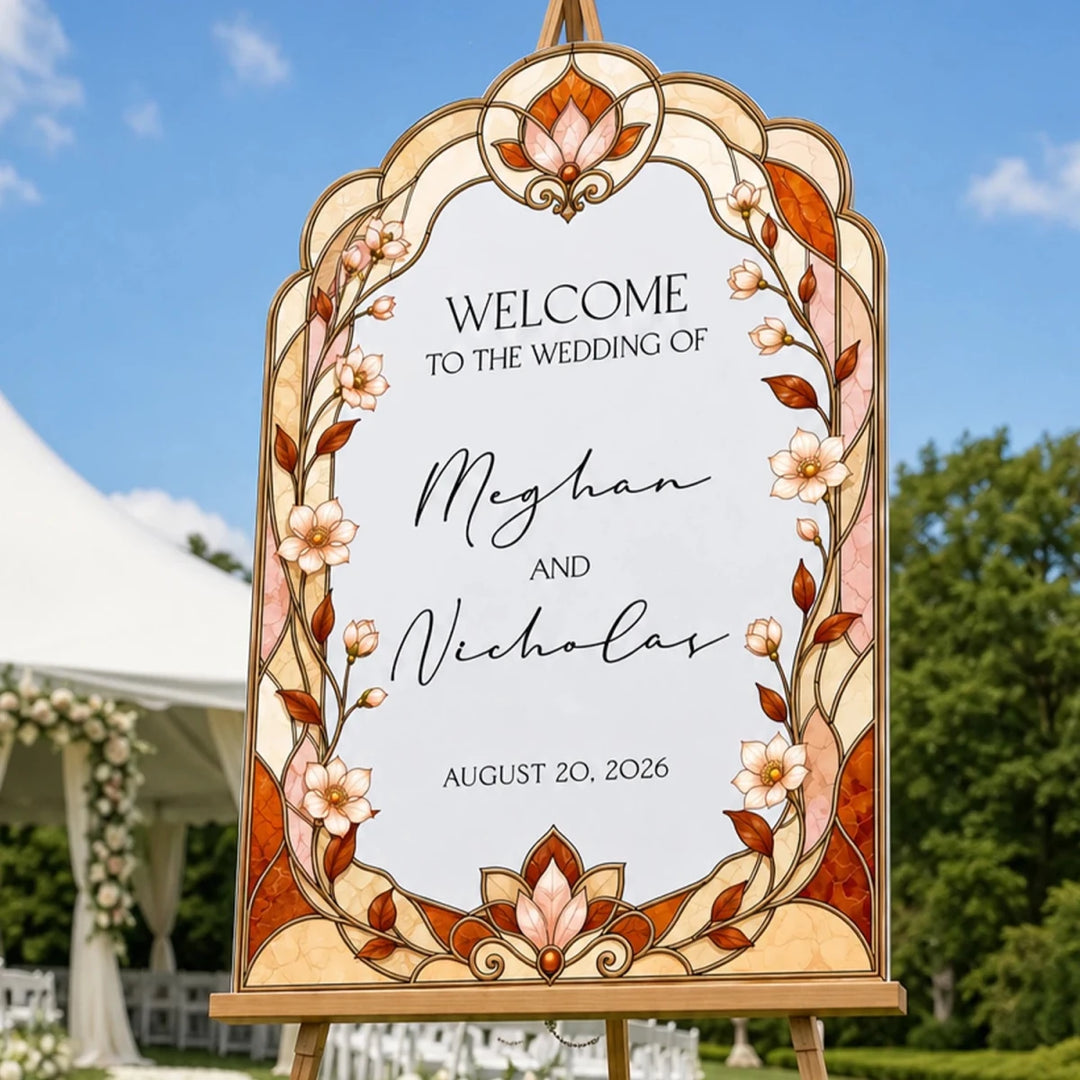 WELCOME
TO THE WEDDING OF
Meghan
AND
Nicholas
AUGUST 20, 2026